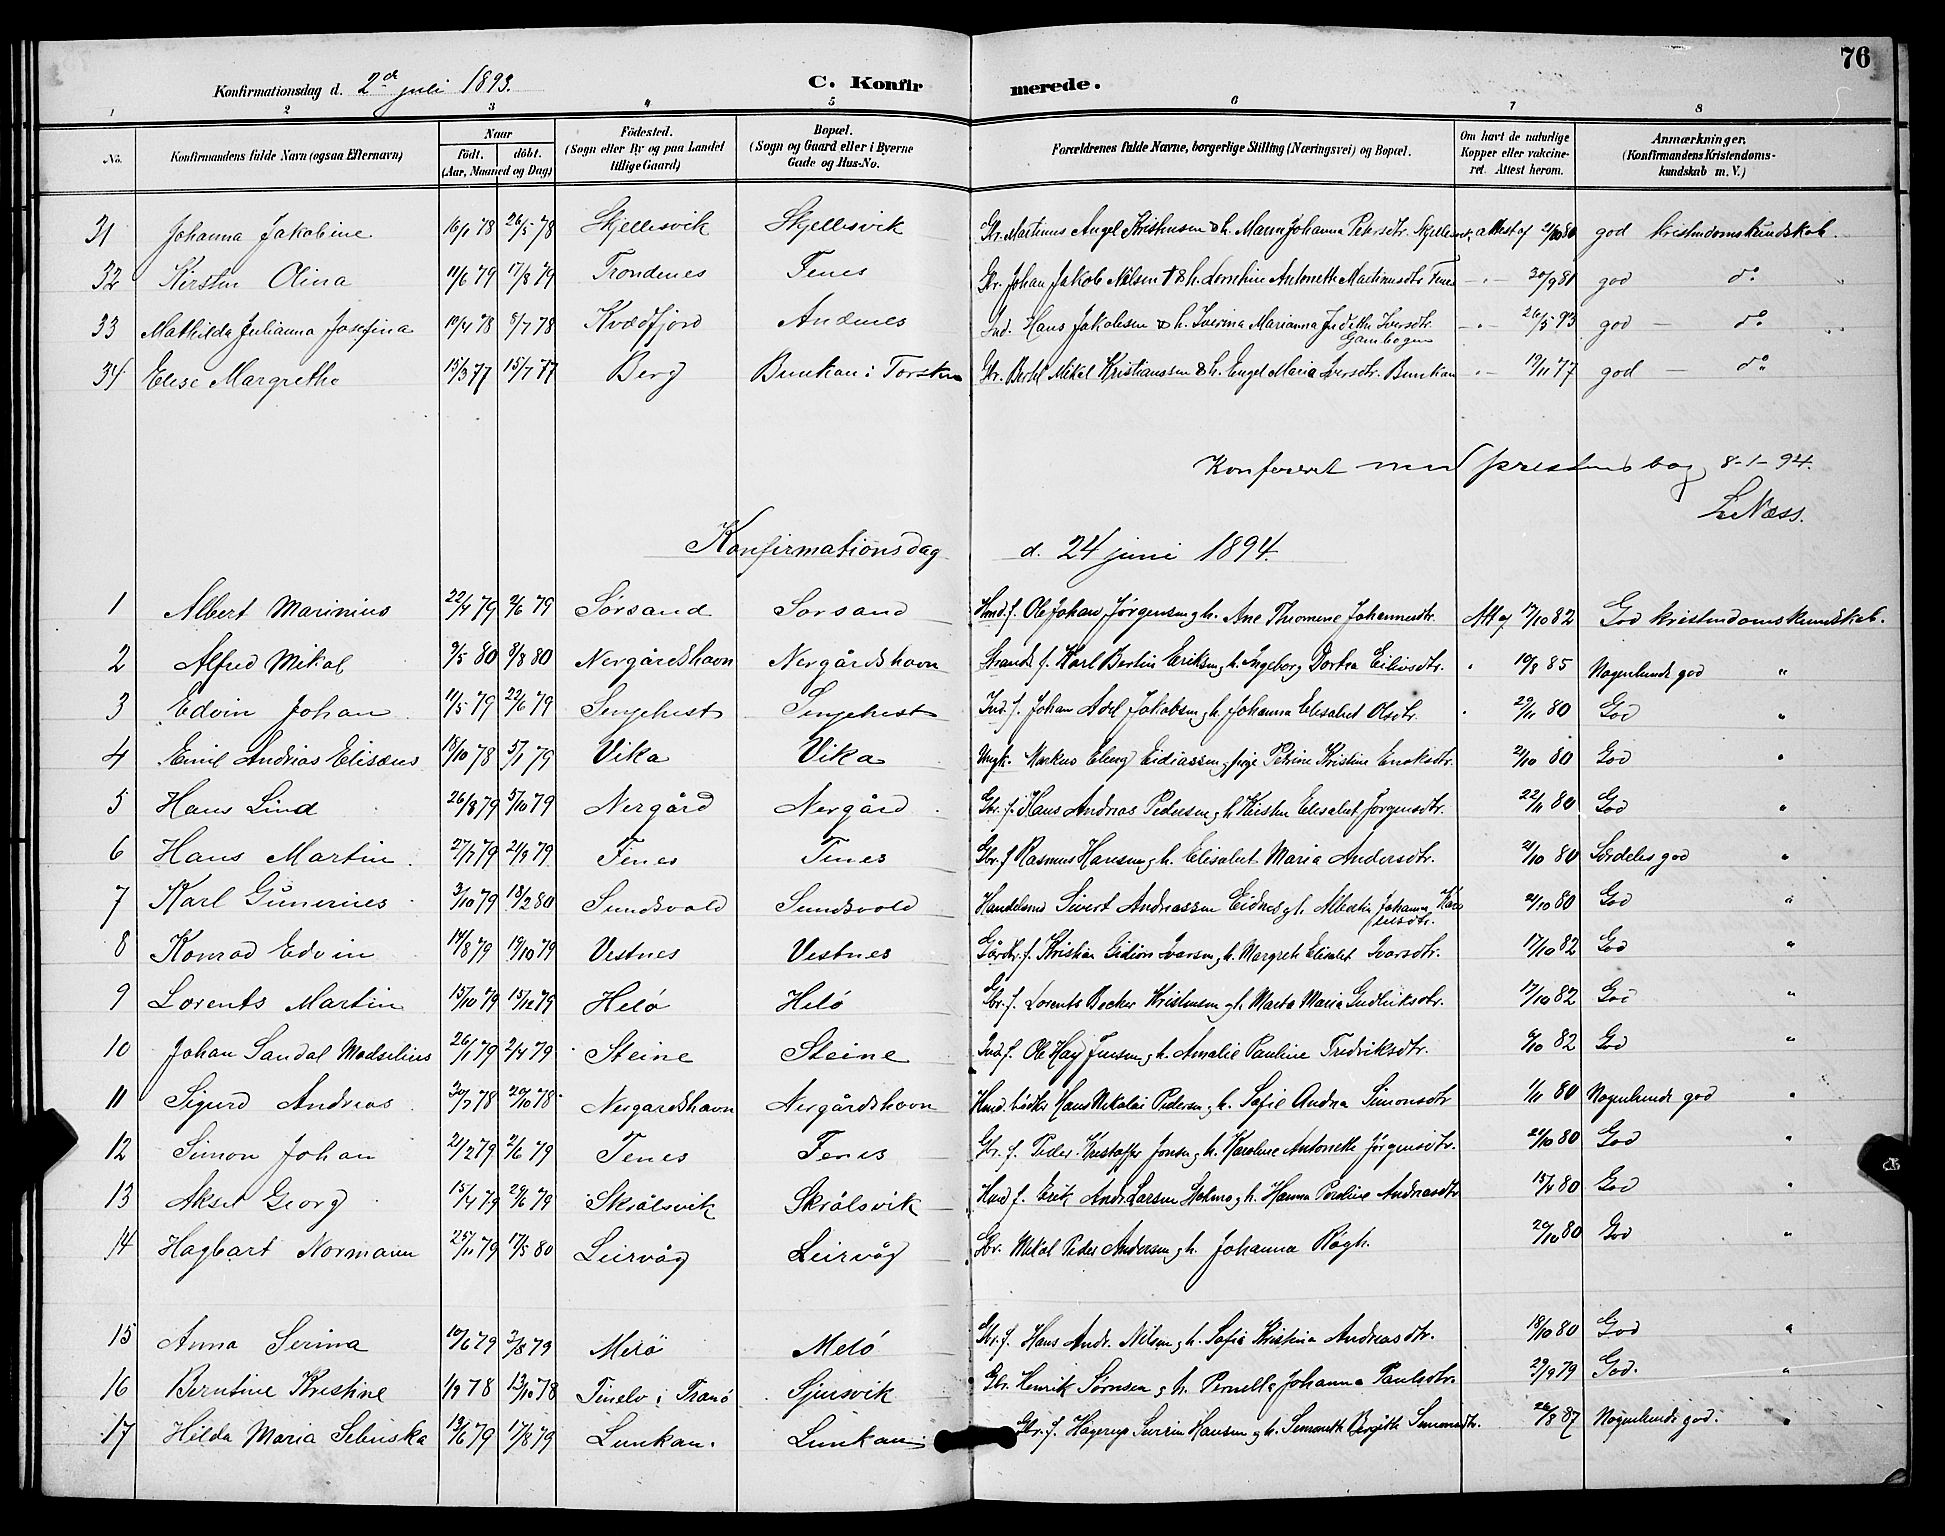 76
Konfirmationsdag d. 2d juli 1893. C. Konfirmerede.
1 2 3 4 5 6 7 8
No. Konfirmandens fulde Navn (ogsaa Efternavn) Naar födt. döbt. (Aar, Maaned og Dag) Födested. (Sogn eller By og paa Landet tillige Gaard) Bopæl. (Sogn og Gaard eller i Byerne Gade og Hus-No. Forældrenes fulde Navne, borgerlige Stilling (Næringsvei) og Bopæl. Om havt de naturlige Kopper eller vakcineret. Attest herom. Anmærkninger. (Konfirmandens Kristendomskundskab m. V.)
31 Johanna Jakobine 16/1 78 26/5 78 Skjellesvik Skjellesvik Gbr. Martinus Angel Kristensen & h. Maren Johanna Petersdtr. attest af 21/10 80 god kristendomskundskab.
32 Kirsten Olina 11/6 79 17/8 79 Trondenes Tenes Gbr. Johan Jakob Nilsen & h. Antonette Martinusdtr. Tenes 30/9 81 god do
33 Mathilda Julianna Josefina 10/4 78 8/7 78 Kvædfjord Andenes Ind. Hans Jakobsen & h. Iverina Marianna Judithe Iversdtr. 26/5 93 god — do
34 Elese Margrethe 15/3 77 15/7 77 Berg Bunkan i Torsken Gbr. Berthel Mikal Kristianssen & h. Engel Maria Iversdtr. Bunkan 19/11 77 god — do
Konfereret med prestens bog 8-1-94.
L. Næss.
Konfirmationsdag d. 24 juni 1894.
1 Albert Marinius 22/4 79 2/6 79 Sörsand Sörsand Hmd. f. Ole Johan Jörgensen g h. Ane Thomene Johannesdtr. Att af 17/10 82 God kristendomskundskab.
2 Alfred Mikal 9/5 80 8/8 80 Nergårdshavn Nergårdshavn Strands. f. Karl Bertin Eriksen g h. Ingeborg Dortea Eilivsdtr. " 19/8 85 Nogenlunde god "
3 Edvin Johan 11/5 79 22/6 79 Sengehest Sengehest Ind. f. Johan Axel Jakobsen g h. Johanna Elisabet Olsdtr. " 29/11 80 God "
4 Emil Andrias Elisæus 18/10 78 5/1 79 Vika Vika Ungk. Markus Eleng Eidiassen, pige Petrine Kristine Enoksdtr. 21/10 80 God "
5 Hans Lind 26/8 79 5/10 79 Nergård Nergård Gbr. f. Hans Andreas Pedersen g h Kirsten Elisabet Jørgensdtr. 22/11 80 God "
6 Hans Martin 27/7 79 21/9 79 Tenes Tenes Gbr. f Rasmus Hansen g h. Elisabet Maria Andersdtr. 21/10 80 Særdeles god "
7 Karl Gunerius 3/10 79 18/2 80 Sundsvold Sundsvold Handelsmd Sivert Andreassen Eidnes g h. Albertin Johanna 21/10 80 God "
8 Konrad Edvin 14/8 79 19/10 79 Vestnes Vestnes Gårdbr. f. Kristian Gidion Ivarsen g h. Margreth Elisabet Ivarsdtr. 17/10 82 God "
9 Lorents Martin 15/10 79 15/12 79 Helö Helö Gbr. f. Lorents Becker Kristensen g h. Marta Maria Gudleiksdtr. 17/10 82 God "
10 Johan Sandal Modselius 26/1 79 2/4 79 Steine Steine Ind. f. Ole Hay Jensen g h. Amalie Pauline Fredriksdtr. 6/10 82 God "
11 Sigurd Andreas 30/7 78 20/10 78 Nergardshavn Nergårdshavn Hmd. bödker Hans Nikolai Pedersen g h. Sofie Andrea Simonsdtr 1/11 80 Nogenlunde god "
12 Simon Johan 21/2 79 2/6 79 Tenes Tenes Gbr. f. Peder Kristoffer Jonsen g h. Karoline Antonette Jørgensdtr. 21/10 80 God "
13 Aksel Georg 15/4 79 29/6 79 Skrålsvik Skrålsvik Hmd f. Erik Andr. Larsen Holmo g h. Hanna Pauline Andreasdtr 15/11 80 God "
14 Hagbart Normann 25/11 79 17/5 80 Leirvåg Leirvåg Gbr. Mikal Peder Andersen g h. Johanna Rögh. 20/10 80 God "
15 Anna Serina 10/6 79 3/8 79 Melö Melö Gbr. f. Hans Andr. Nilsen g h. Sofie Kristina Andreasdtr. 18/10 80 God "
16 Berntine Kristine 1/9 78 13/10 78 Tinelv i Tranö Gjersvik Gbr. Henrik Sørensen g h. Pernella Johanna Paulsdtr. 29/9 79 God. "
17 Hilda Maria Sebuska 13/6 79 17/8 79 Lunkan. Lunkan Gbr. f. Hagerup Severin Hansen g h. Simonette Bergitte Simonsdtr. 26/8 87 Nogenlunde god. "